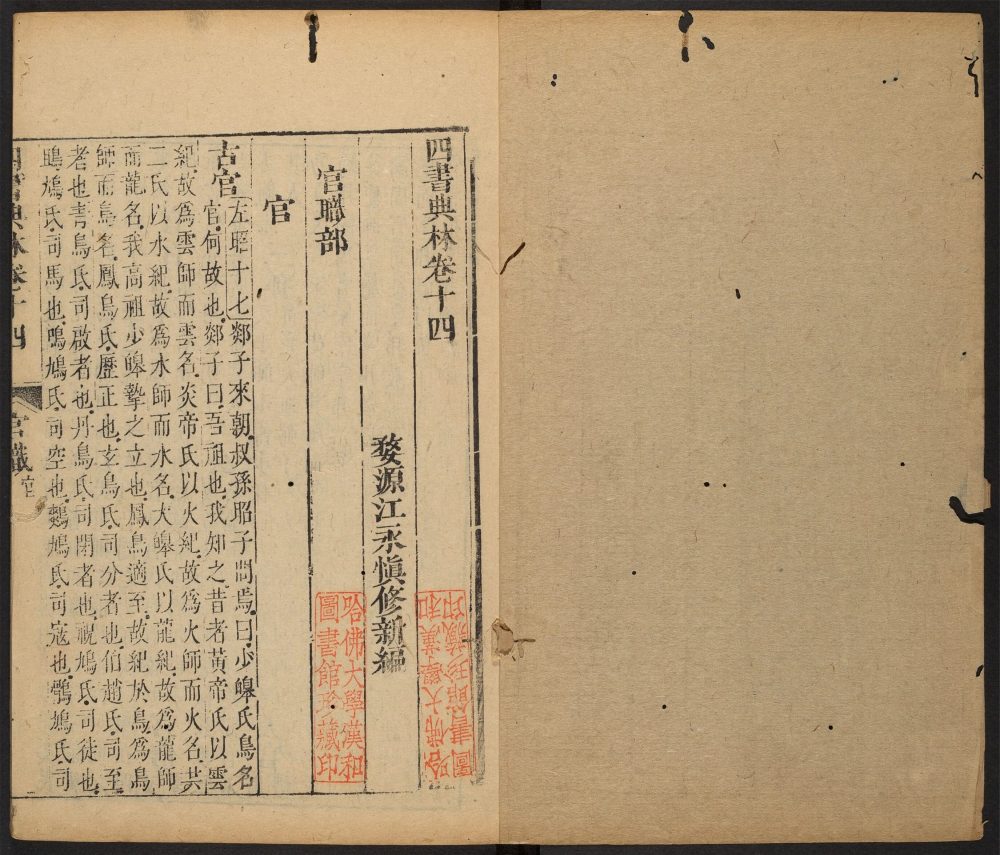 四書典林卷十四
婺源江永慎修新編
官職部
官
古官左昭十七郯子來朝叔孫昭子問焉曰少皞氏鳥名
官何故也郯子曰吾祖也我知之昔者黃帝氏以雲
紀故爲雲師而雲名炎帝氏以火紀故爲火師而火名共
二氏以水紀故爲水師而水名大皞氏以龍紀故爲龍師
而龍名我高祖少皞摯之立也鳳鳥適至故紀於鳥爲鳥
師而鳥名鳳鳥氏歷正也玄鳥氏司分者也伯趙氏司至
者也青鳥氏司啟者也丹鳥氏司閉者也祝鳩氏司徒也
鴡鳩氏司馬也鳲鳩氏司空也鷞鳩氏司寇也鶻鳩氏司
四書典林卷十四
官職 官
哈佛大學漢和
圖書館珍藏印
哈佛大學漢和
圖書館珍藏印